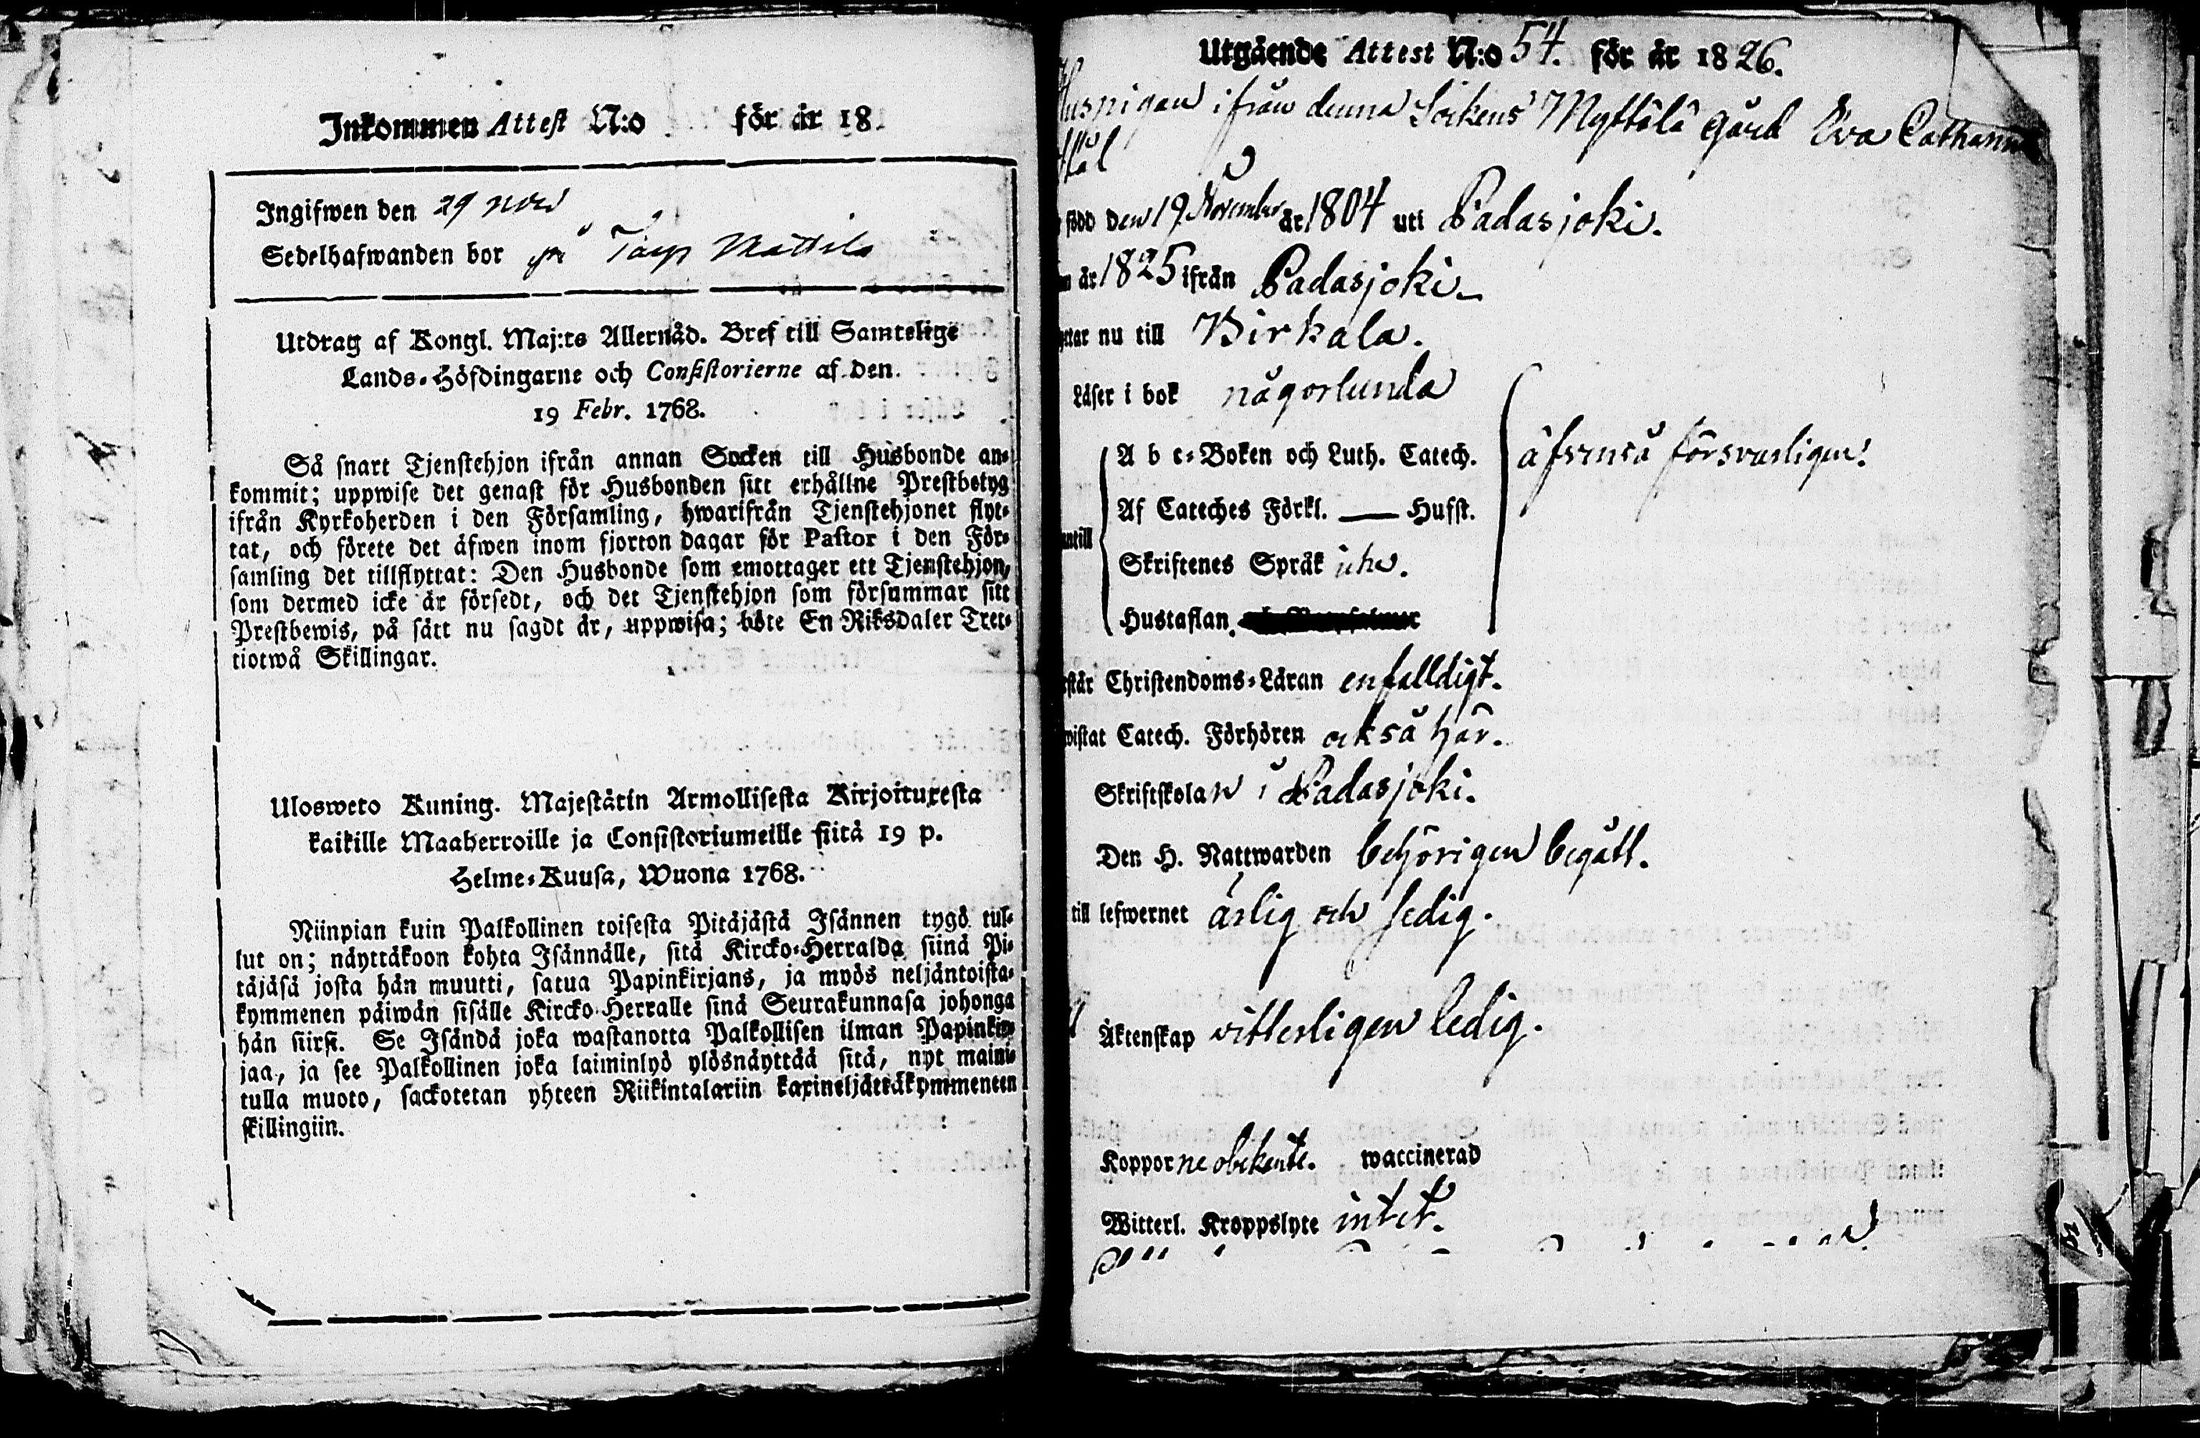 Inkommen Attest N:o för år 18
Ingifwen den 29 nov
Sedelhafwanden bor på Taip Mattila
Utdrag af Kongl. Maj:ts Allernåd. Bref till Samtelige
Lands-Höfdingarne och Consistorierne af den
19 Febr. 1768.
Så snart Tjenstehjon ifrån annan Socken till Husbonde an-
kommit; uppwise det genast för Husbonden sitt erhållne Prestbetyg
ifrån Kyrkoherden i den Församling, hwarifrån Tjenstehjonet flyt-
tat, och förete det äfwen inom fjorton dagar för Pastor i den För-
samling det tillflyttat: Den Husbonde som emottager ett Tjenstehjon,
som dermed icke är försedt, och det Tjenstehjon som försummar sitt
Prestbewis, på sätt nu sagdt är, uppwisa; böte En Riksdaler Tret-
tiotwå Skillingar.
Ulosweto Kuning. Majestätin Armollisesta Kirjoituxesta
kaikille Maaherroille ja Consistoriumeille siitä 19 p.
Helme-Kuusa, Wuona 1768.
Niinpian kuin Palkollinen toisesta Pitäjästä Isännen tygö tul-
lut on; näyttäkoon kohta Isännälle, sitä Kircko-Herralda siinä Pi-
täjäsä josta hän muutti, satua Papinkirjans, ja myös neljäntoista-
kymmenen päiwän sisälle Kircko-Herralle sinä Seurakunnasa johonga
hän siirsi. Se Isändä joka wastanotta Palkollisen ilman Papinkir-
jaa, ja see Palkollinen joka laiminlyö ylösnäyttää sitä, nyt maini-
tulla muoto, sackotetan yhteen Riikintalariin kaxineljättäkymmeneen
skillingiin.
Utgående Attest N:o 54. för år 1826.
Huspigan ifrån denna Sockens Myttälä gård Eva Catharina
född den 19 November år 1804 uti Padasjoki.
år 1825 ifrån Padasjoki.
nu till Birkala.
Läser i bok någorlunda
A b c-Boken och Luth. Catech. äfvenså försvarligen.
Af Cateches Förkl. — Hufst.
Skriftenes Språk icke.
Hustaflan.
Christendoms-Läran enfalldigt.
Catech. Förhören också här.
Skriftskolan i Padasjoki.
Den H. Nattwarden behörigen begått.
till lefwernet ärlig och sedig.
Äktenskap vitterligen ledig.
Kopporne obekante. waccinerad
Witterl. Kroppslyte intet.